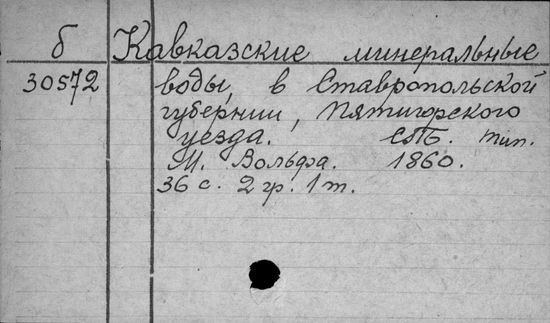 б Кавказские минеральные
30572 воды, в Ставропольской
губернии, Пятигорского
уезда. СПБ. тип.
М. Вольфа. 1860.
36 с. 2 гр. 1 т.